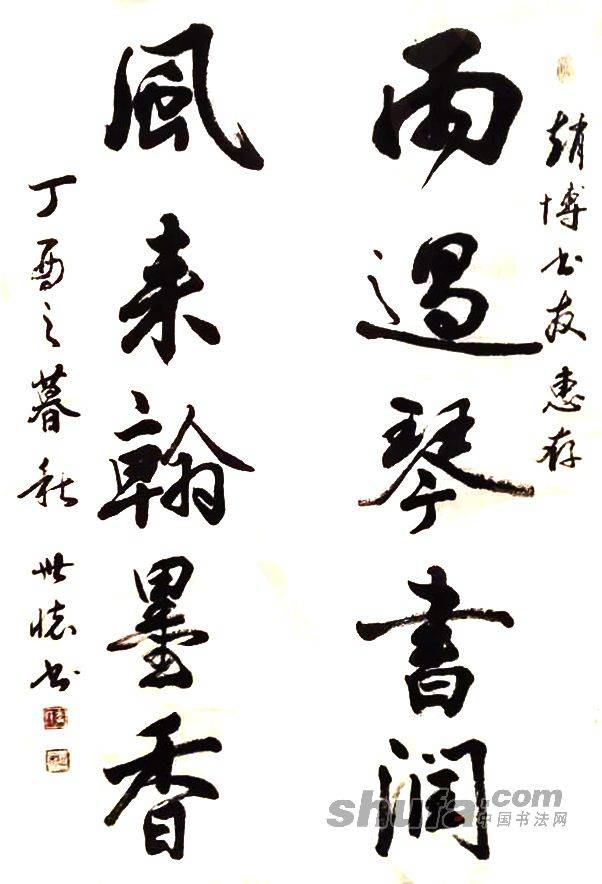 趙博书友惠存
雨過琴書润
風来翰墨香
丁酉之暮秋 世懷书
shufa.com
中国书法网